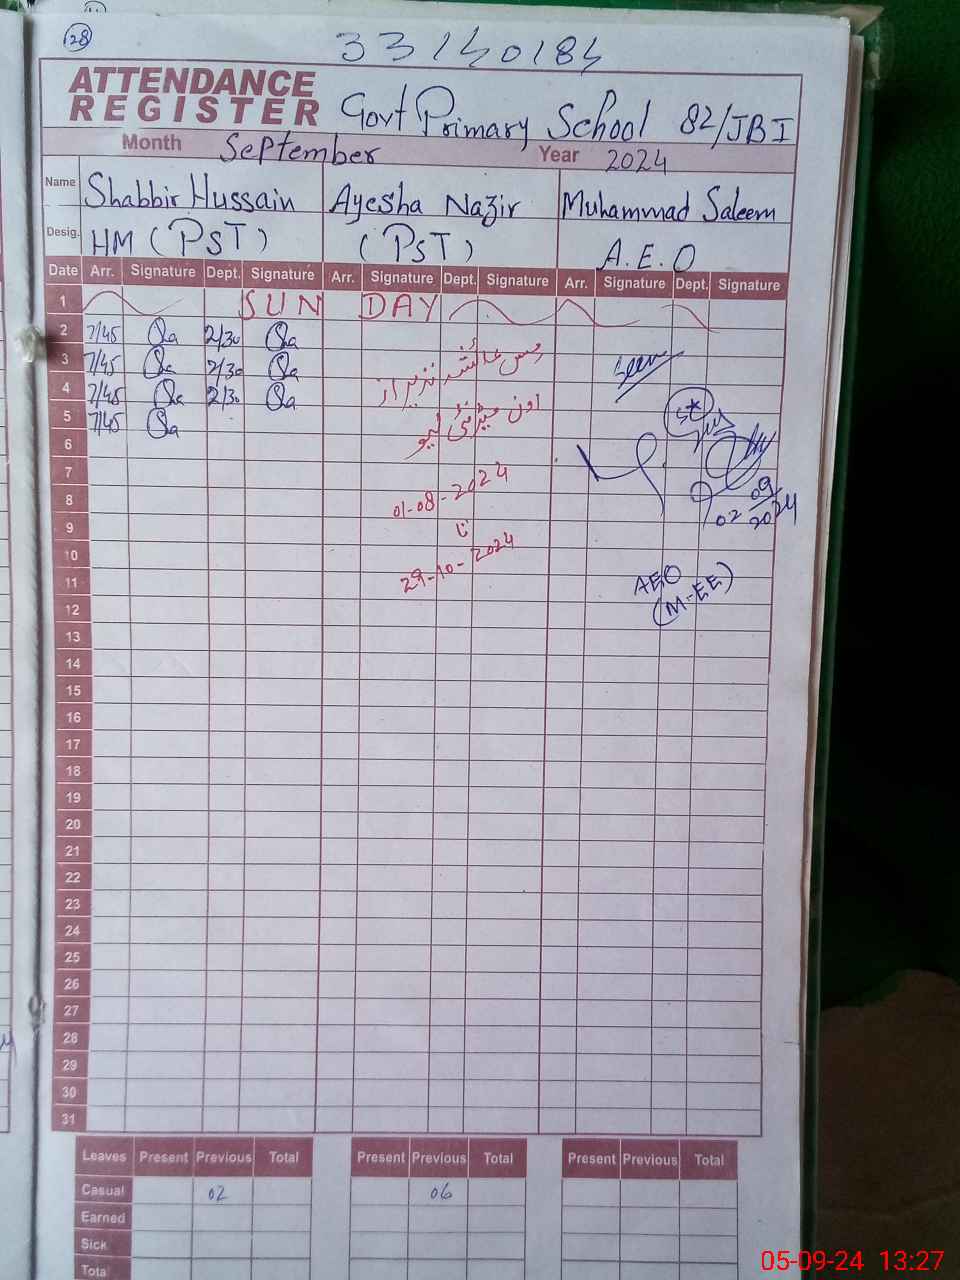 28
33140184
ATTENDANCE
REGISTER Govt Primary School 82/JB I
Month September Year 2024
Name Shabbir Hussain Ayesha Nazir Muhammad Saleem
Desig. HM (PST) (PST) A.E.O
Date Arr. Signature Dept. Signature Arr. Signature Dept. Signature Arr. Signature Dept. Signature
1 SUN DAY
2 7/45 2/30
3 7/45 2/30 مس عائشہ نذیر از Seen
4 7/45 2/30
5 7/45 اون میٹرنٹی لیو
6
7
8 01-08-2024 02 09 2024
9 تا
10 29-10-2024
11 AEO
12 (M-EE)
13
14
15
16
17
18
19
20
21
22
23
24
25
26
27
28
29
30
31
Leaves Present Previous Total Present Previous Total Present Previous Total
Casual 02 06
Earned
Sick
Total
05-09-24 13:27